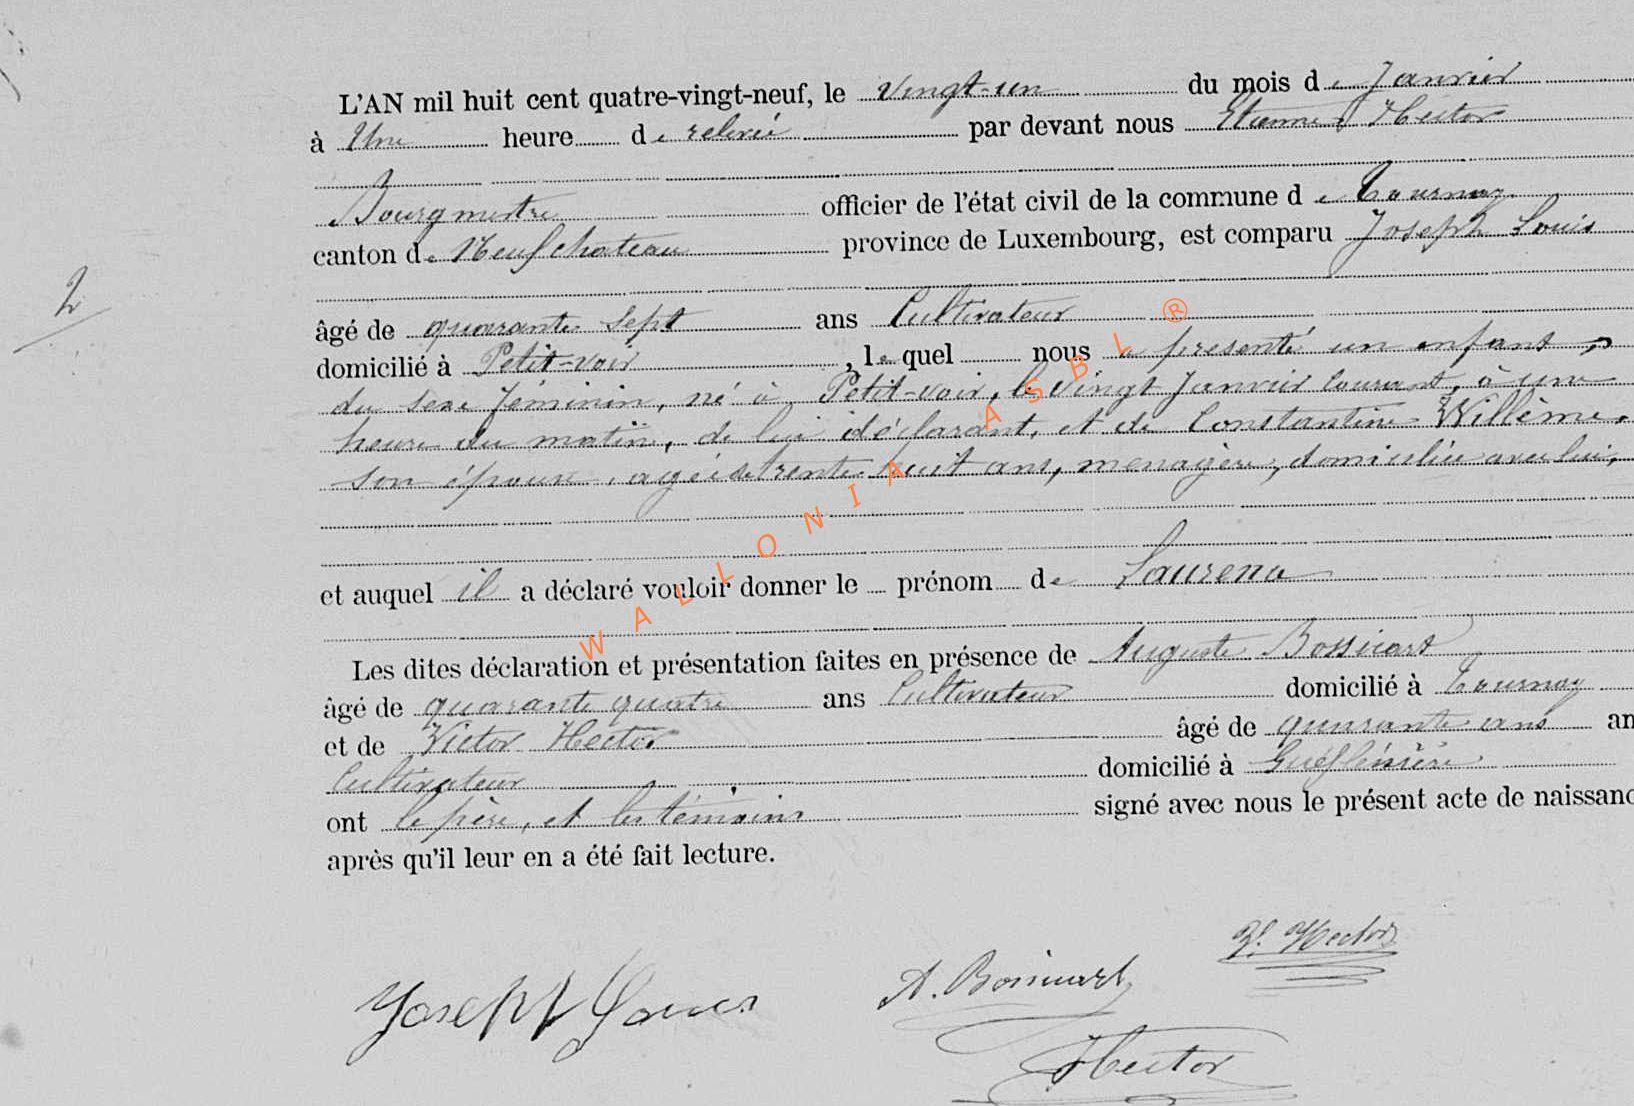 L'AN mil huit cent quatre-vingt-neuf, le vingt-un du mois de Janvier
à Une heure de relevée par devant nous Etienne Hector
Bourgmestre officier de l'état civil de la commune de Tournay
canton de Neufchateau province de Luxembourg, est comparu Joseph Louis
2
âgé de quarante sept ans Cultivateur
domicilié à Petit-voir, lequel nous a présenté un enfant
du sexe féminin, né à Petit-voir, le vingt Janvier courant, à une
heure du matin, de lui déclarant, et de Constantine Willème,
son épouse, agée de trente huit ans, menagère, domiciliée avec lui,
et auquel il a déclaré vouloir donner le prénom de Laurena
Les dites déclaration et présentation faites en présence de Auguste Bossicart
âgé de quarante quatre ans Cultivateur domicilié à Tournay
et de Victor Hector âgé de quarante ans an
Cultivateur domicilié à
ont le père, et les témoins signé avec nous le présent acte de naissanc
après qu'il leur en a été fait lecture.
WALLONIA ASBL ®
V. Hector
A. Bossicart
Joseph Louis
Hector